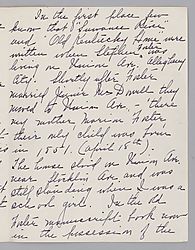 In the first place few
know that Suwanee River
and "Old Kentucky Home were
written when Stephen Foster
living on Union Ave., Allegheny
City. Shortly after Foster
married Jennie McDowell they
moved to Union Ave., - there
my mother Marion Foster
their only child was born
in 1851. (April 18th).
The house stood on Union Ave.
near Stockton Ave. and was
still standing when I was a
school girl. In the old
Foster manuscript book now
in the possession of the